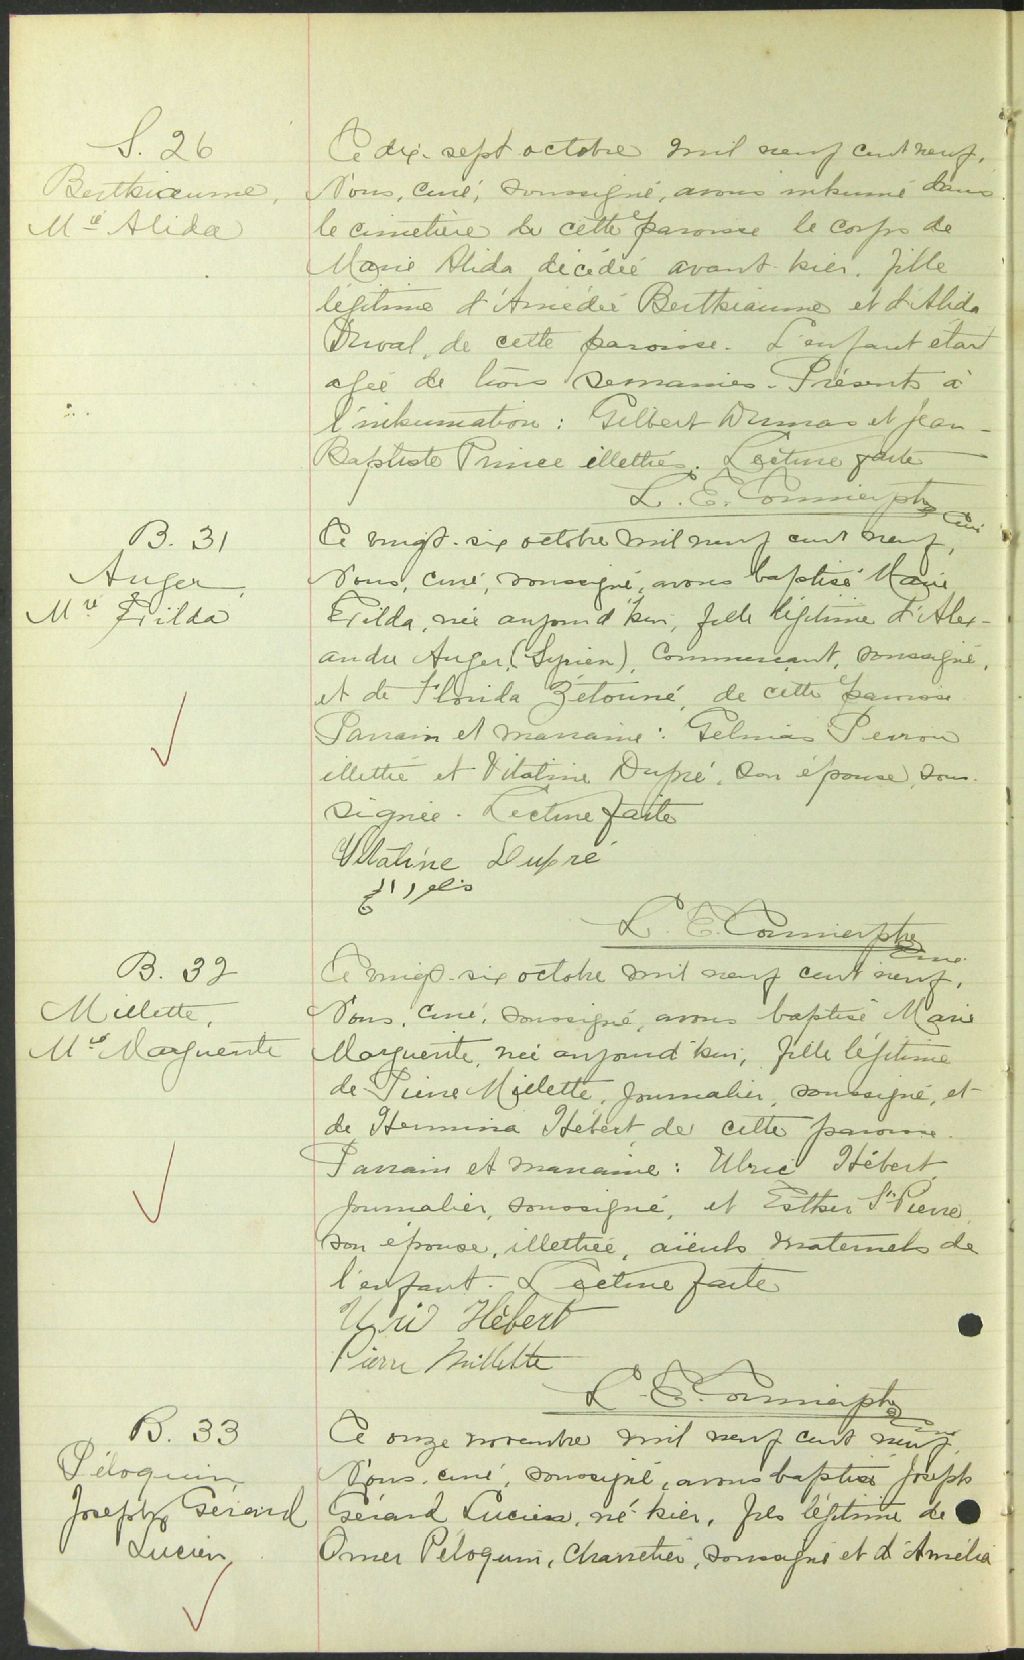 S. 26
Berthiaume,
Mie Alida
Ce dix-sept octobre mil neuf cent neuf,
Nous, curé, soussigné, avons inhumé dans
le cimetière de cette paroisse le corps de
Marie Alida décédée avant-hier, fille
légitime d'Amédée Berthiaume et d'Alida
Duval, de cette paroisse. L'enfant était
agée de trois semaines. Présents à
l'inhumation : Gilbert Dumas et Jean-
Baptiste Prince illettrés. Lecture faite
L. E. Cormier ptre
Curé
B. 31
Auger,
Mie Exilda
Ce vingt-six octobre mil neuf cent neuf,
Nous, curé, soussigné, avons baptisé Marie
Exilda, née aujourd'hui, fille légitime d'Alex-
andre Auger, (Syrien), commerçant, soussigné,
et de Florida Zétouné, de cette paroisse
Parrain et marraine : Gelinas Perron
illettré et Vitaline Dupré, son épouse, sous-
signée. Lecture faite
Vitaline Dupré
L. E. Cormier ptre
Curé
B. 32
Millette,
Mie Marguerite
Ce vingt-six octobre mil neuf cent neuf,
Nous, curé, soussigné, avons baptisé Marie
Marguerite, née aujourd'hui, fille légitime
de Pierre Millette, journalier, soussigné, et
de Hermina Hébert, de cette paroisse.
Parrain et marraine : Ulric Hébert,
journalier, soussigné, et Esther St-Pierre,
son épouse, illettrée, aïeuls maternels de
l'enfant. Lecture faite
Uric Hébert
Pierre Millette
L. E. Cormier ptre
Curé
B. 33
Péloquin
Joseph Gérard
Lucien
Ce onze novembre mil neuf cent neuf,
Nous, curé, soussigné, avons baptisé Joseph
Gérard Lucien, né hier, fils légitime de
Omer Péloquin, charretier, soussigné et d'Amélia